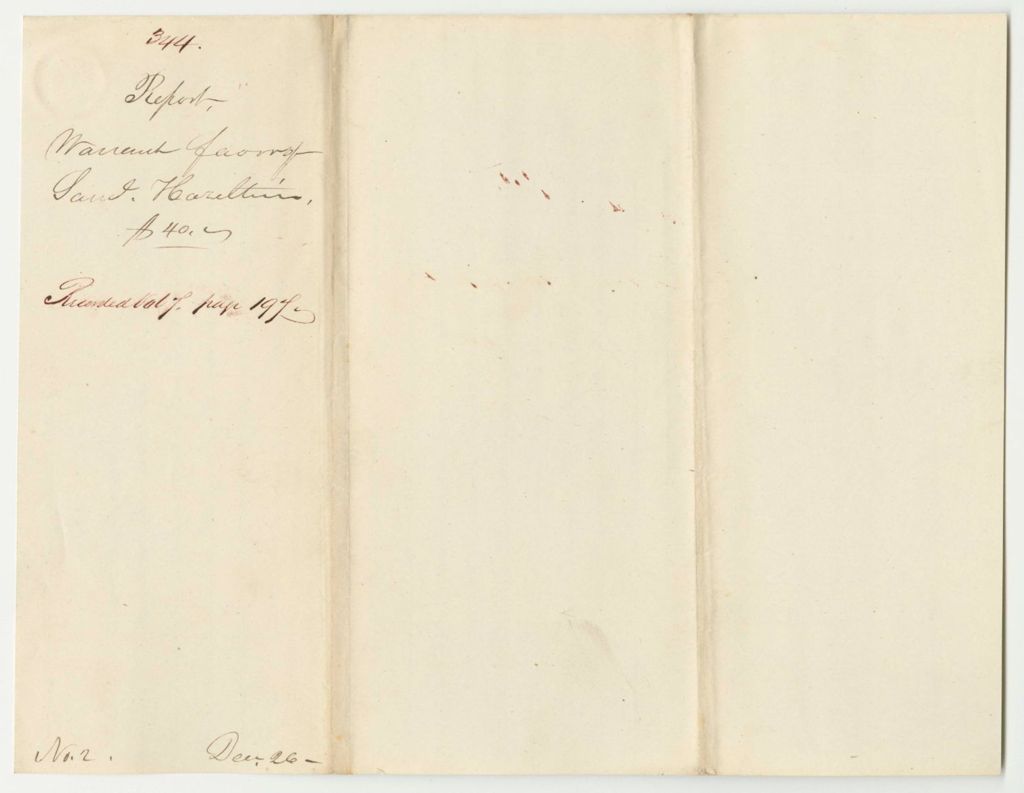 344.
Report,
Warrant favor of
Saml. Hazeltine,
$40.
Recorded Vol 7. page 197
No. 2.
Dec. 26